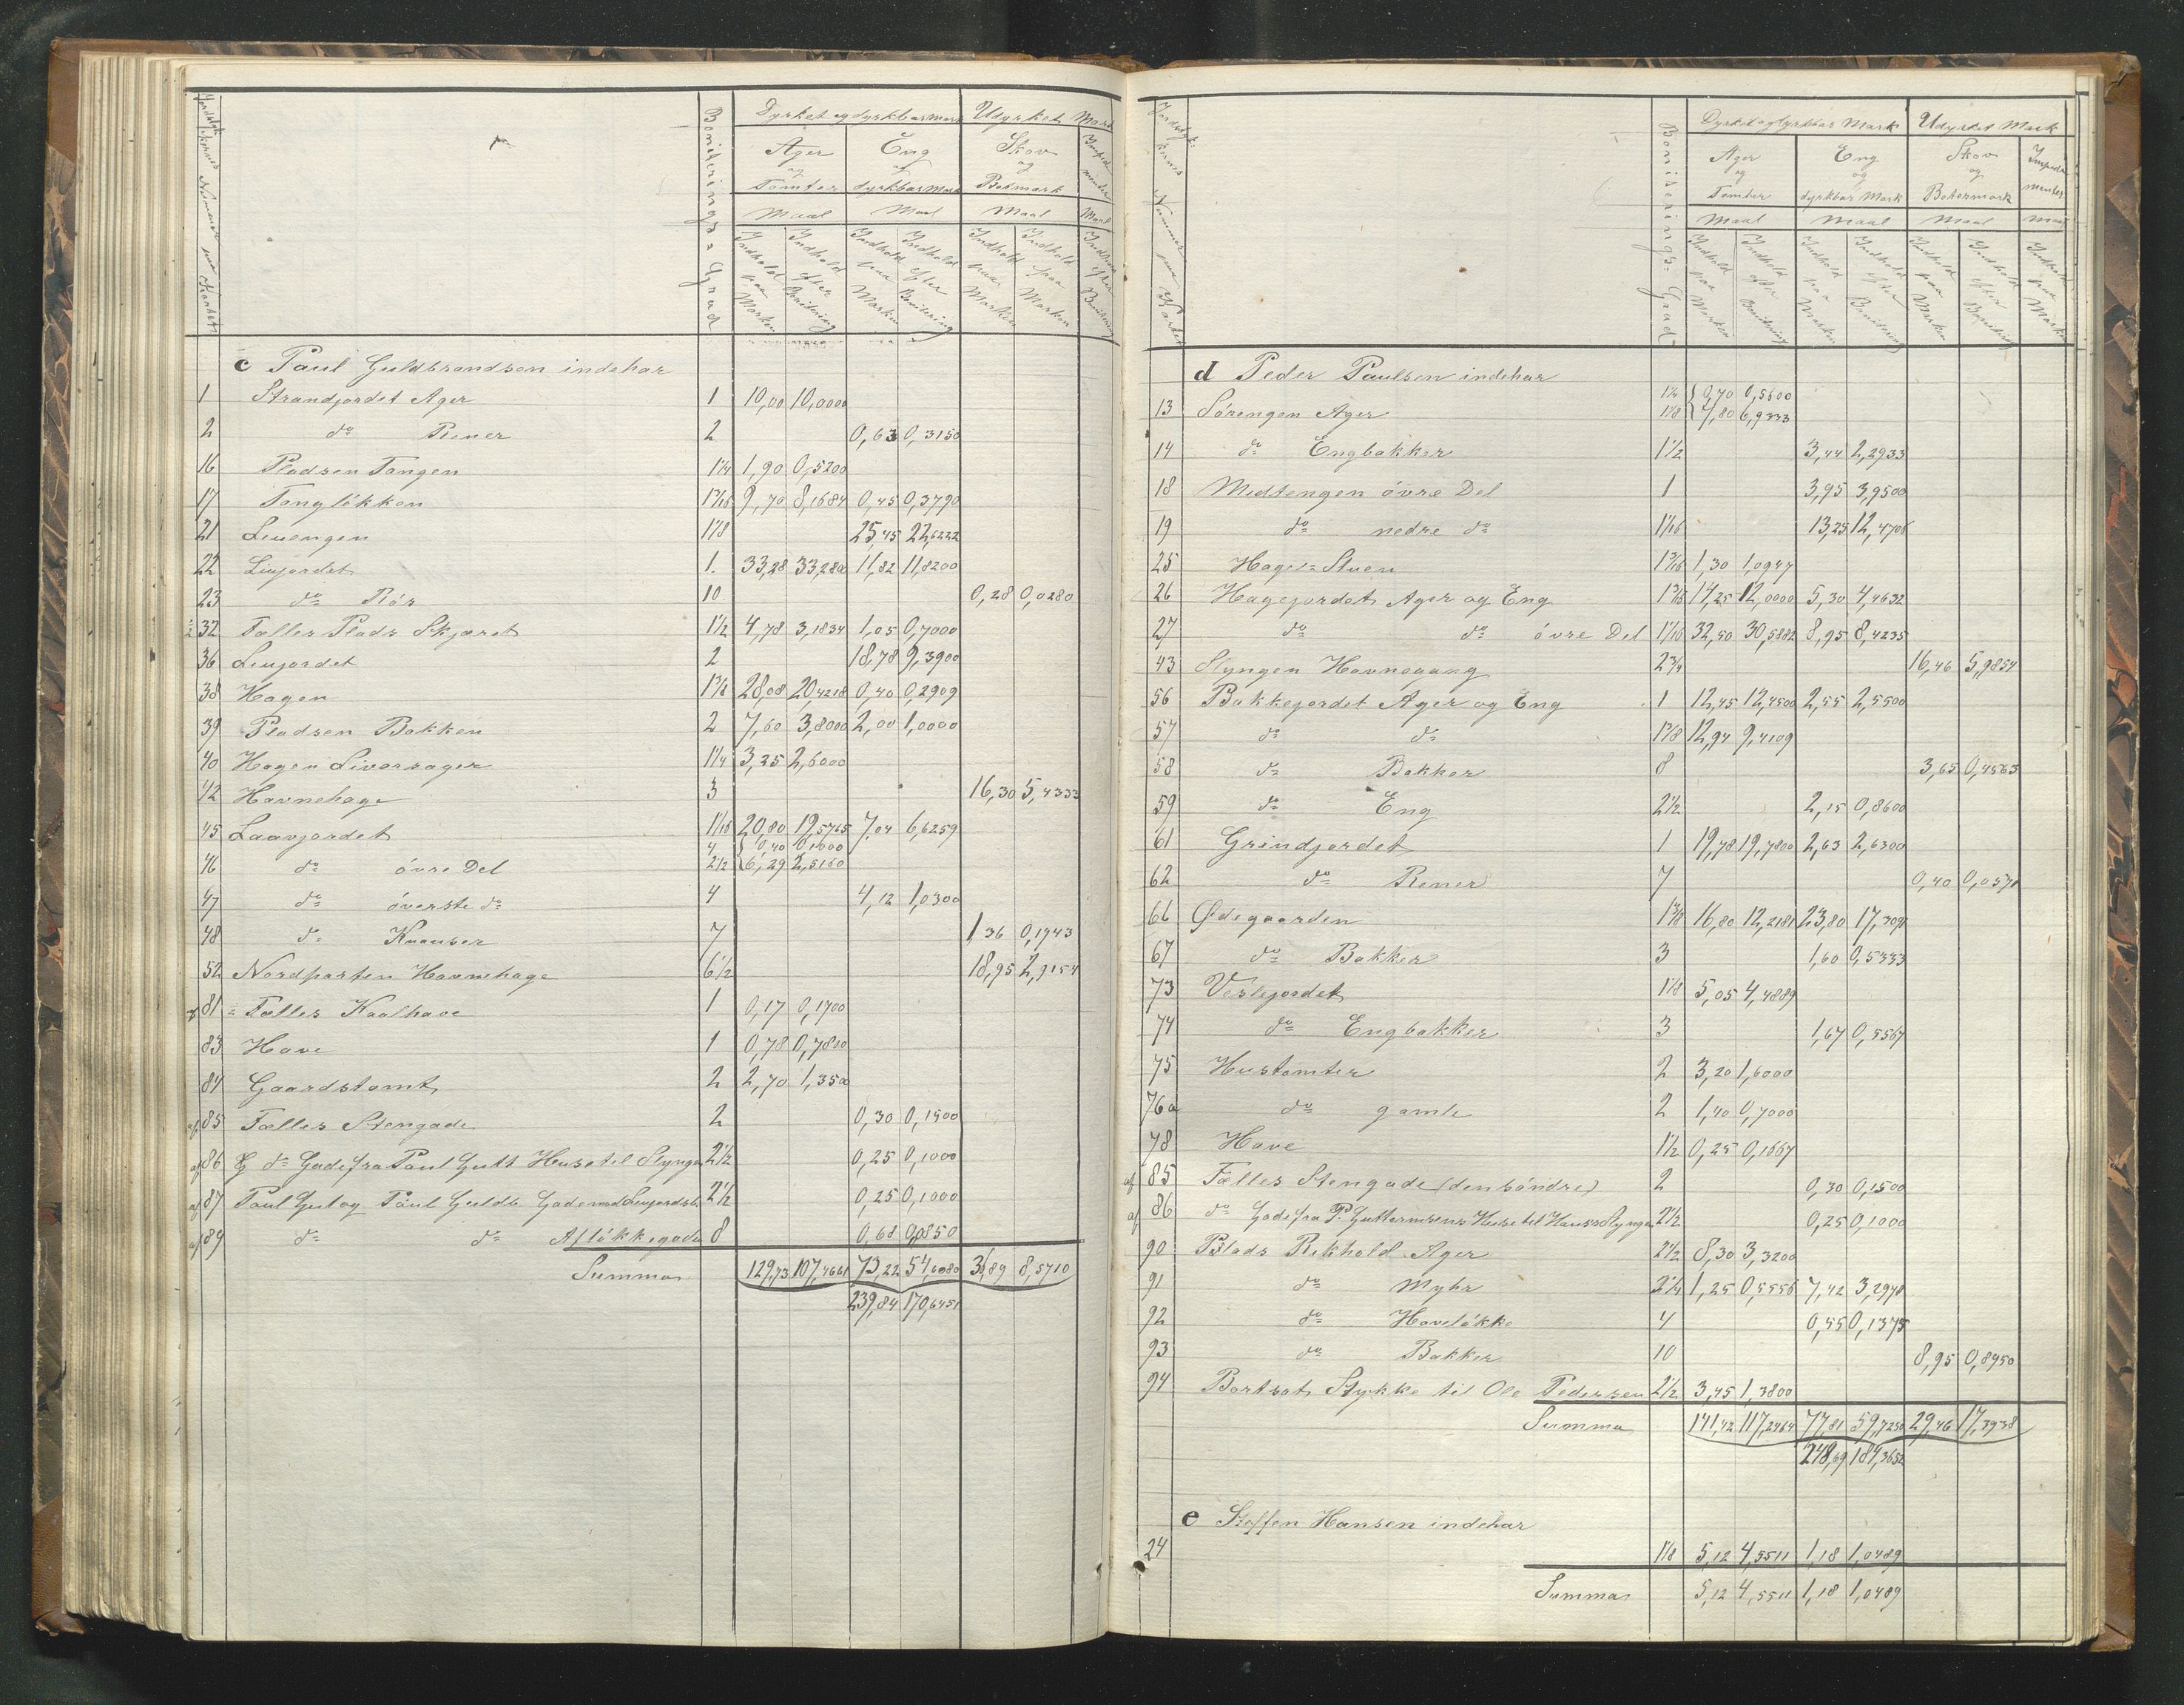 Dyrket og dyrkbar Mark Udyrket Mark
Ager og Tomter Eng og dyrkbar Mark Skov og Betmark
Maal Maal Maal Maal
Boniterings-Grad
Indhold paa Marken Indhold efter Bonitering Indhold paa Marken Indhold efter Bonitering Indhold paa Marken Indhold paa Marken
c Paul Guldbrandsen indehar
1 Strandjordet Ager 1 10,00 10,0000
2 do Rener 2 0,63 0,3150
16 Pladsen Tangen 1¼ 1,90 0,5200
17 Tangløkken 1 3/16 9,70 8,1684 0,45 0,3790
21 Liuengen 1 1/8 25,45 22,6222
22 Liujordet 1 33,28 33,2800 11,82 11,8200
23 do Rös 10 0,28 0,0280
½ 32 Fælles Plads Skjæret 1½ 4,78 3,1834 1,05 0,7000
36 Liujordet 2 18,78 9,3900
38 Hagen 1 3/8 28,08 20,4218 0,40 0,2909
39 Pladsen Bakken 2 7,60 3,8000 2,00 1,0000
40 Hagen Liversager 1¼ 3,25 2,6000
42 Havnehage 3 16,30 5,4333
45 Laavejordet 1 1/16 20,80 19,5765 7,04 6,6259
4 0,40 0,1000
46 do övre Del 2½ 6,29 2,5160
47 do överste do 4 4,12 1,0300
48 do Knauser 7 1,36 0,1943
52 Nordparten Havnehage 6½ 18,95 2,9154
81 Fælles Kaalhave 1 0,17 0,1700
83 Have 1 0,78 0,7800
84 Gaardstomt 2 2,70 1,3500
af 85 Fælles Stengade 2 0,30 0,1500
af 86 do Gade fra Paul Gutt Huse til Slyngen 2½ 0,25 0,1000
af 87 Paul Gut og Paul Guldb. Gade ved Liujordet 2½ 0,25 0,1000
af 89 do do Afløkkegade 8 0,68 0,0850
Summa 129,73 107,4661 73,22 54,6080 36,89 8,5710
239,84 170,6451
Dyrket og dyrkbar Mark Udyrket Mark
Ager og Tomter Eng og dyrkbar Mark Skov og Betermark
Maal Maal Maal Maal
Boniterings-Grad
Indhold paa Marken Indhold efter Bonitering Indhold paa Marken Indhold efter Bonitering Indhold paa Marken Indhold efter Bonitering Indhold paa Marken
d Peder Paulsen indehar
1¼ 0,70 0,5600
13 Sørengen Ager 1 1/8 7,80 6,9333
14 do Engbakker 1½ 3,44 2,2933
18 Midtengen övre Del 1 3,95 3,9500
19 do nedre do 1 1/16 13,25 12,4706
25 Hage-Stuen 1 3/16 1,30 1,0947
26 Hagejordet Ager og Eng 1 3/16 14,25 12,0000 5,30 4,4632
27 do do övre Del 1 1/16 32,50 30,5882 8,95 8,4235
43 Slyngen Havnegang 2¾ 16,46 5,9854
56 Bakkejordet Ager og Eng 1 12,45 12,4500 2,55 2,5500
57 do do 1 3/8 12,94 9,4109
58 do Bakker 8 3,65 0,4563
59 do Eng 2½ 2,15 0,8600
61 Grindjordet 1 19,78 19,7800 2,63 2,6300
62 do Rener 7 0,40 0,0571
66 Ødegaarden 1 3/8 16,80 12,2181 23,80 17,3091
67 do Bakker 3 1,60 0,5333
73 Vestejordet 1 1/8 5,05 4,4889
74 do Engbakker 3 1,67 0,5567
75 Hustomter 2 3,20 1,6000
76a do gamle 2 1,40 0,7000
78 Have 1½ 0,25 0,1667
af 85 Fælles Stengade (den søndre) 2 0,30 0,1500
af 86 do Gade fra P. Guttormsens Huse til Hauss Slyngen 2½ 0,25 0,1000
90 Plads Rikhold Ager 2½ 8,30 3,3200
91 do Myhr 2¼ 1,25 0,5556 7,42 3,2978
92 do Haveløkke 4 0,55 0,1375
93 do Bakker 10 8,95 0,8950
94 Bortsat Stykke til Ole Pedersen 2½ 3,45 1,3800
Summa 141,42 117,2464 77,81 59,7250 29,46 17,3938
248,69 184,3652
e Steffen Hansen indehar
24 1 1/8 5,12 4,5511 1,18 1,0489
Summa 5,12 4,5511 1,18 1,0489